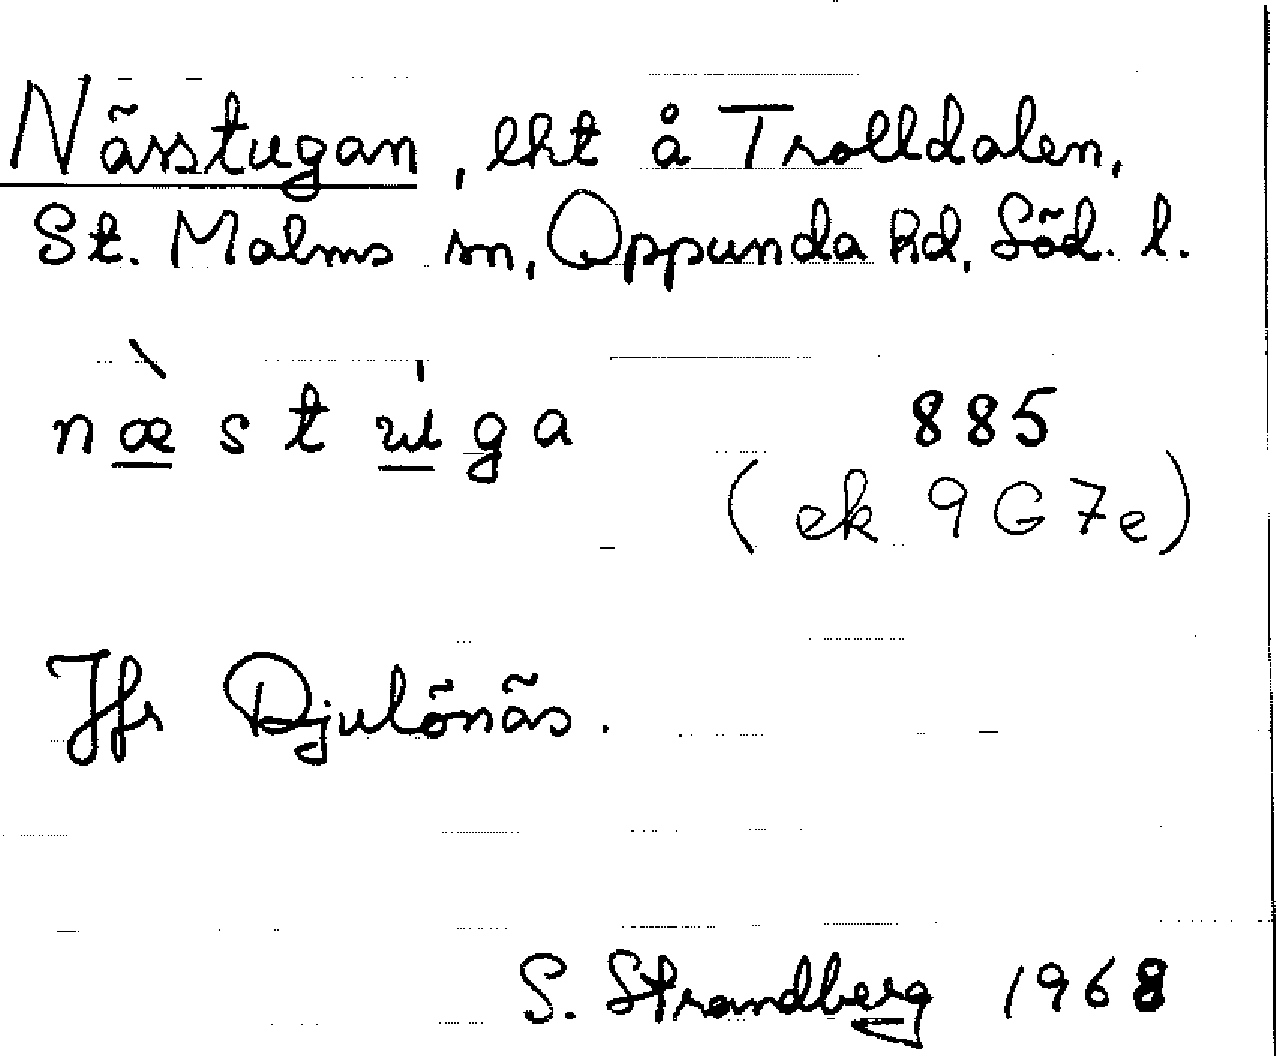 Nässtugan, lht å Trolldalen,
St. Malms sn, Oppunda hd, Söd. l.
næ̀stúga 885
(ek 9G7e)
Jfr Djulönäs.
S. Strandberg 1968